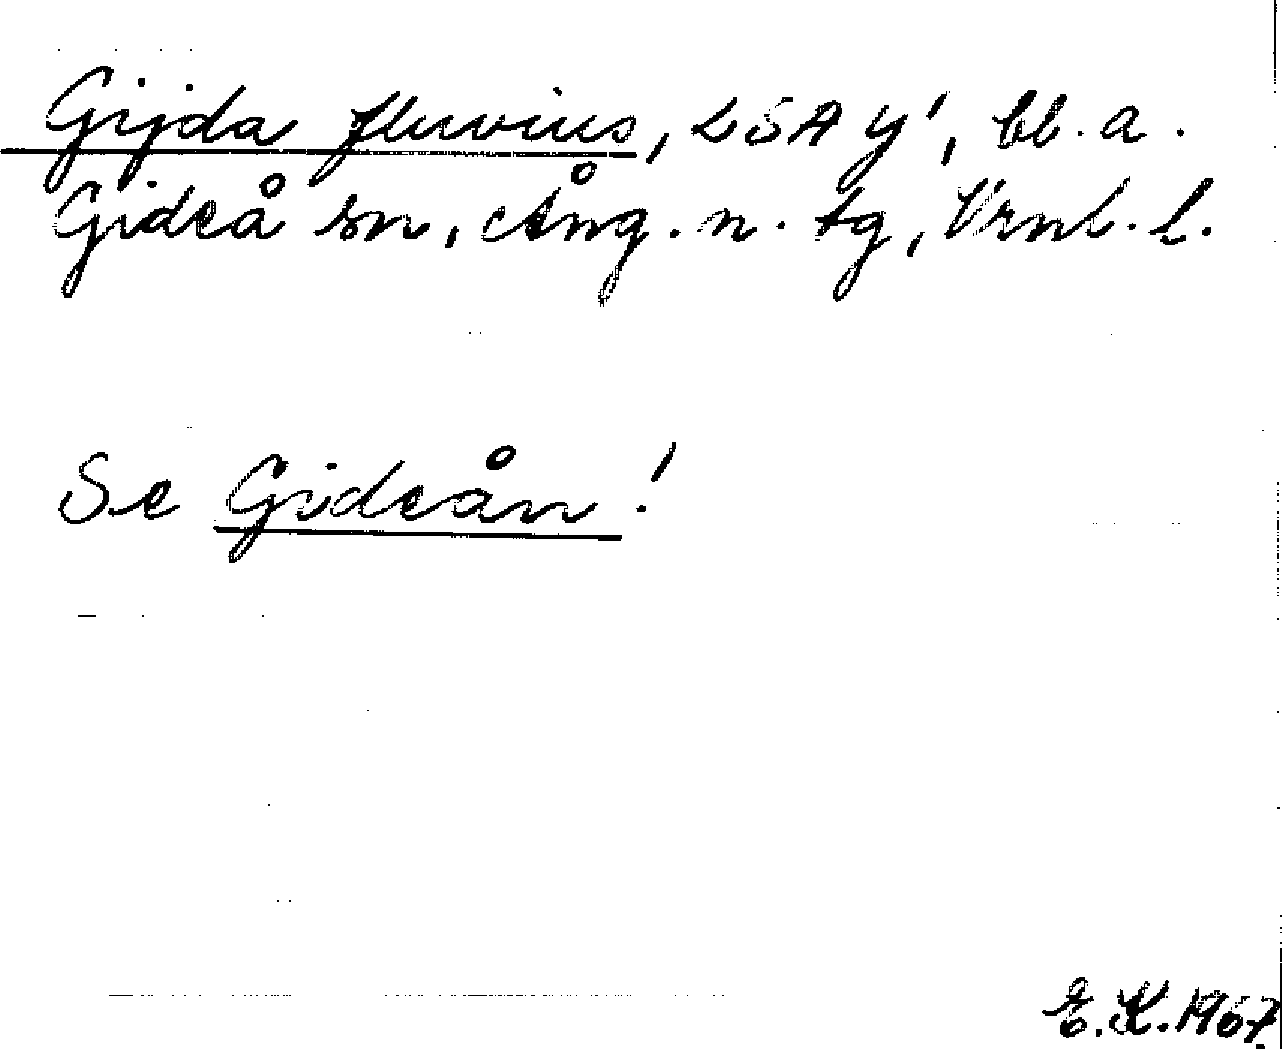 Gijda fluvius, LSA y¹, bl. a.
Gideå sn, Ång. n. tg, Vrnl. l.
Se Gideån!
E. K. 1967.